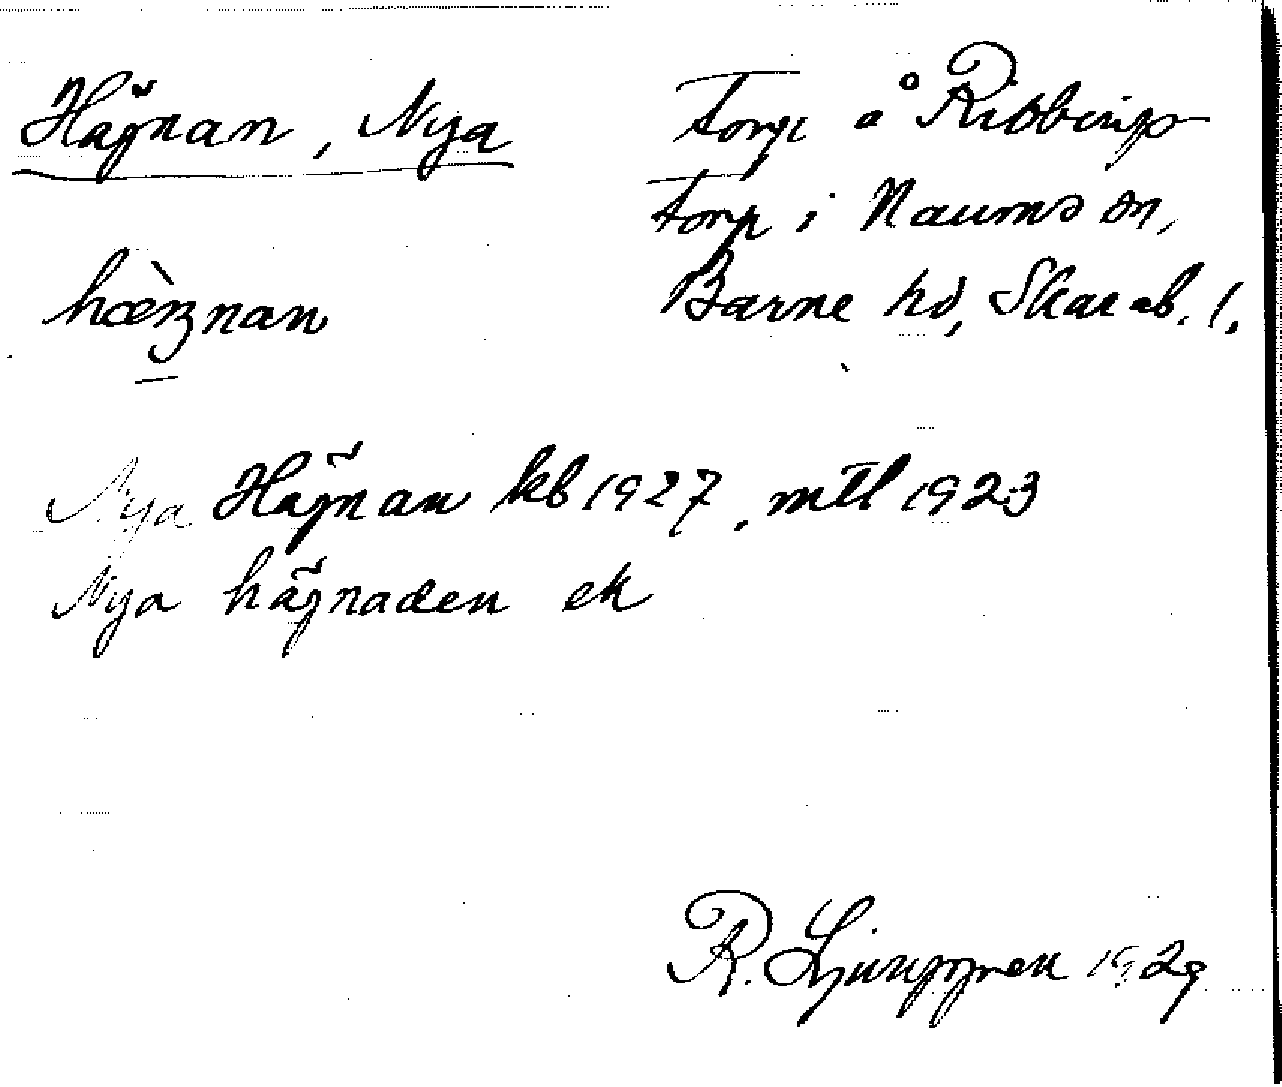 Hägnan, Nya
Torp å Ribbings-
torp i Naums sn,
Barne hd, Skarab. l.
hæ̀ŋnan
Nya Hägnan kb 1927, mtl 1923
Nya hägnaden ek
R. Ljunggren 1929